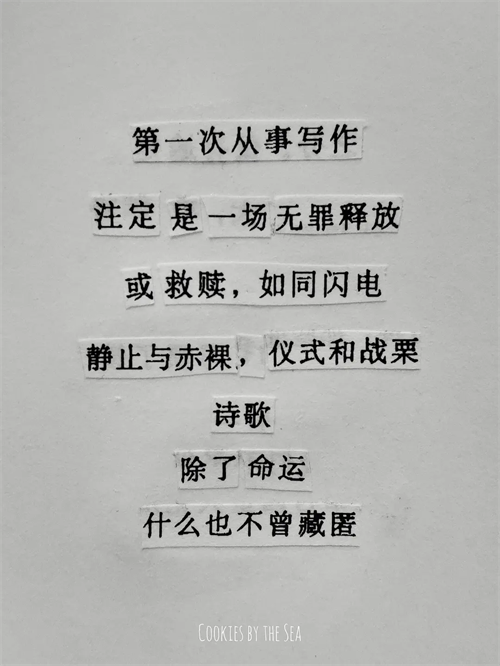 第一次从事写作
注定是一场无罪释放
或救赎，如同闪电
静止与赤裸，仪式和战栗
诗歌
除了命运
什么也不曾藏匿
COOKIES BY THE SEA